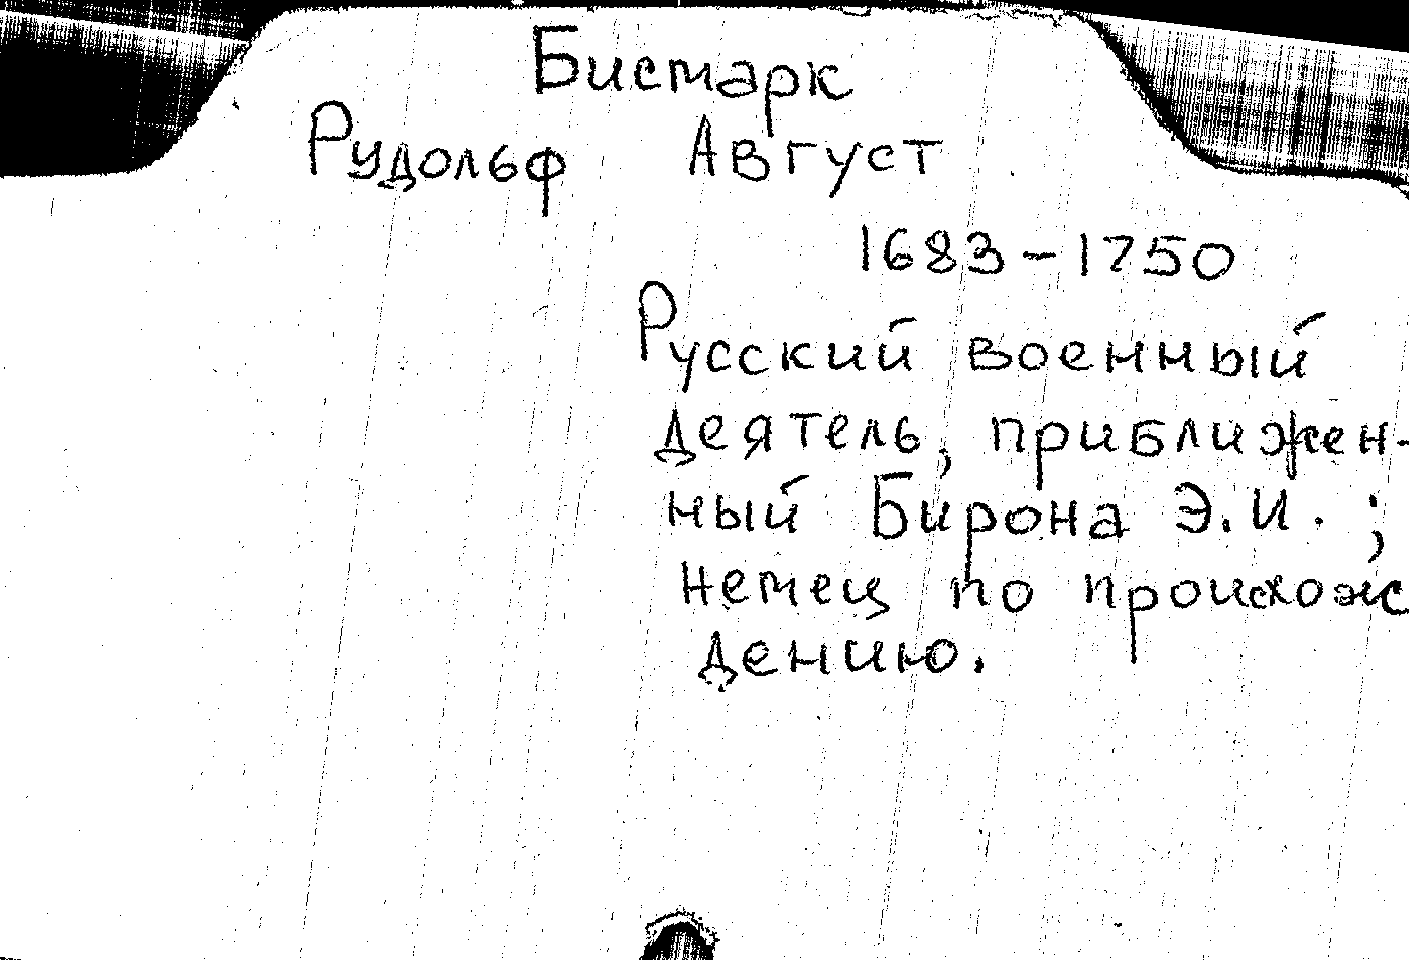 Бисмарк
Рудольф Август
1683-1750
Русский военный
деятель, приближен-
ный Бирона Э.И.;
немец по происхож
дению.